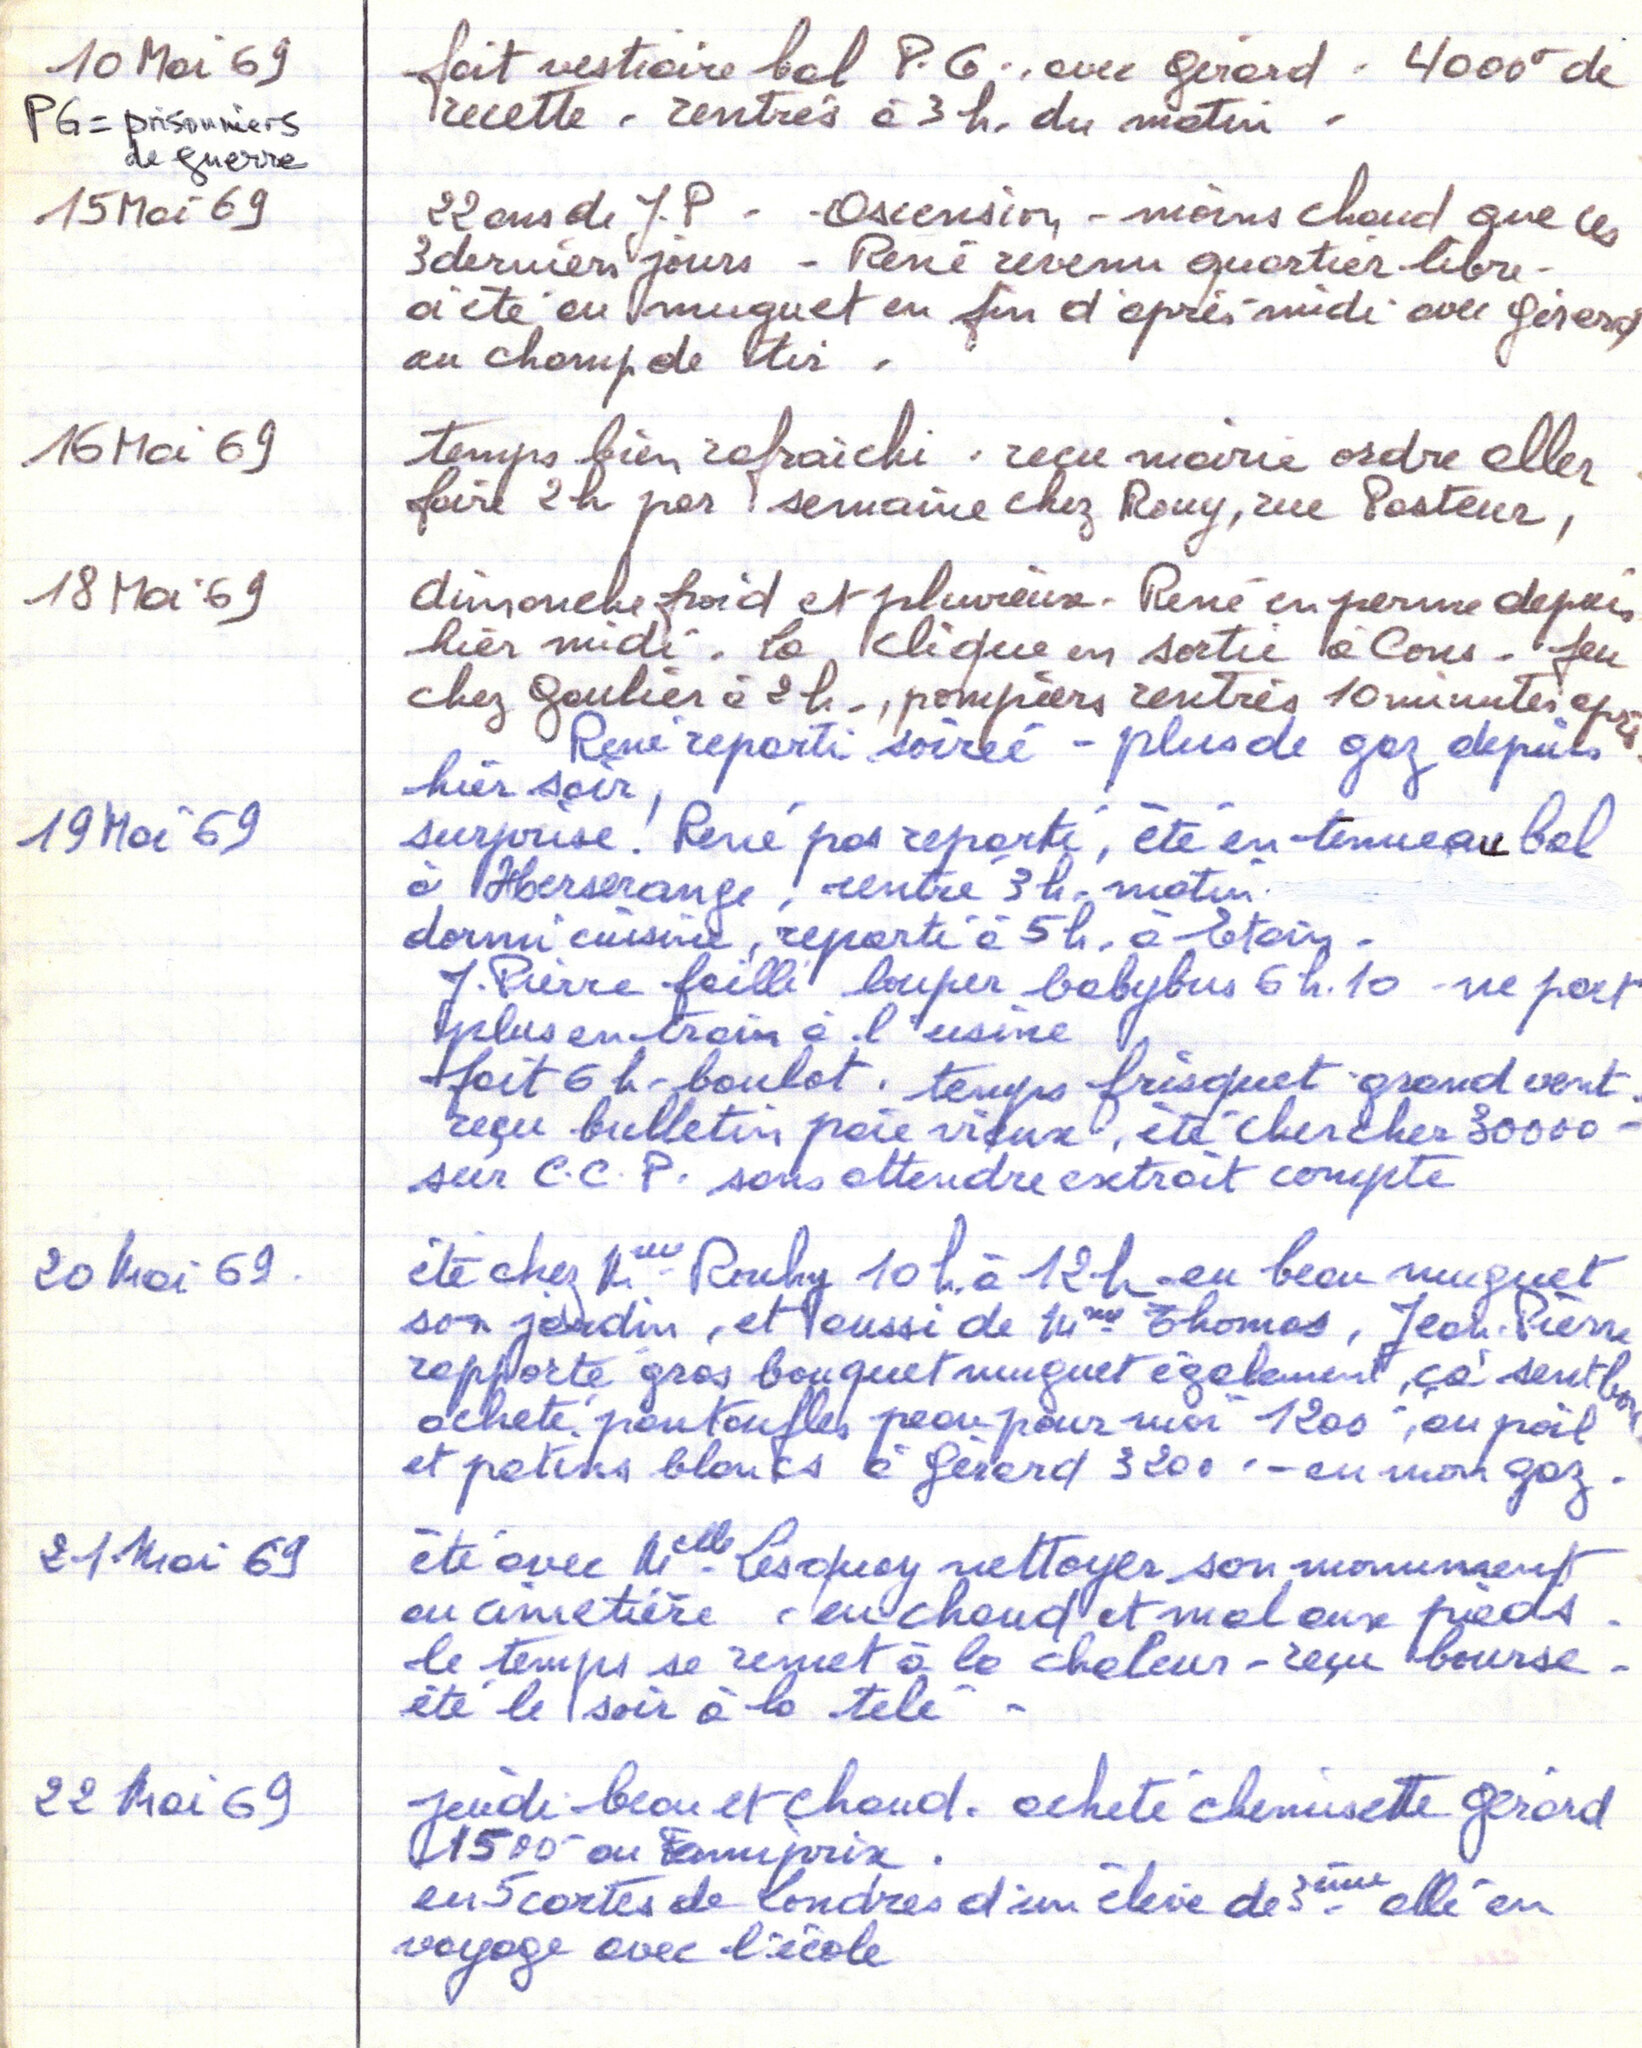 10 Mai 69 fait vestiaire bal P.G.. avec Gérard. 4000 de
PG = prisonniers recette. rentrés à 3 h. du matin.
de guerre
15 Mai 69 22 ans de J.P - Ascension - moins chaud que ces
3 derniers jours - René revenu quartier libre -
a été au muguet en fin d'après-midi avec Gérard
au champ de tir.
16 Mai 69 temps bien rafraîchi. reçu mairie ordre aller
faire 2h par semaine chez Rouy, rue Pasteur,
18 Mai 69 dimanche froid et pluvieux. René en perme depuis
hier midi. La Clique en sortie à Cons. feu
chez Gaulier à 2h., pompiers rentrés 10 minutes après
René reparti soirée - plus de gaz depuis
hier soir,
19 Mai 69 surprise! René pas reparti, été en tenue au bal
à Herserange, rentré 3h. matin
dormi cuisine, reparti à 5h. à Etain.
J. Pierre failli louper babybus 6h.10 - ne part
plus en train à l'usine
fait 6h. boulot. temps frisquet grand vent.
reçu bulletin paie vieux, été chercher 30000 -
sur C.C.P. sans attendre extrait compte
20 Mai 69. été chez Mme Rouhy 10h. à 12h - eu beau muguet
son jardin, et aussi de Mme Thomas, Jean-Pierre
rapporté gros bouquet muguet également, ça sent bon
acheté pantoufles peau pour moi 1200, au poil
et patins blancs à Gérard 3200. - eu mon gaz.
21 Mai 69 été avec Melle Lesquoy nettoyer son monument
au cimetière. eu chaud et mal aux pieds.
le temps se remet à la chaleur - reçu bourse -
été le soir à la télé -
22 Mai 69 jeudi beau et chaud. acheté chemisette Gérard
1500 au Famiprix.
eu 5 cartes de Londres d'un élève de 3ème allé en
voyage avec l'école